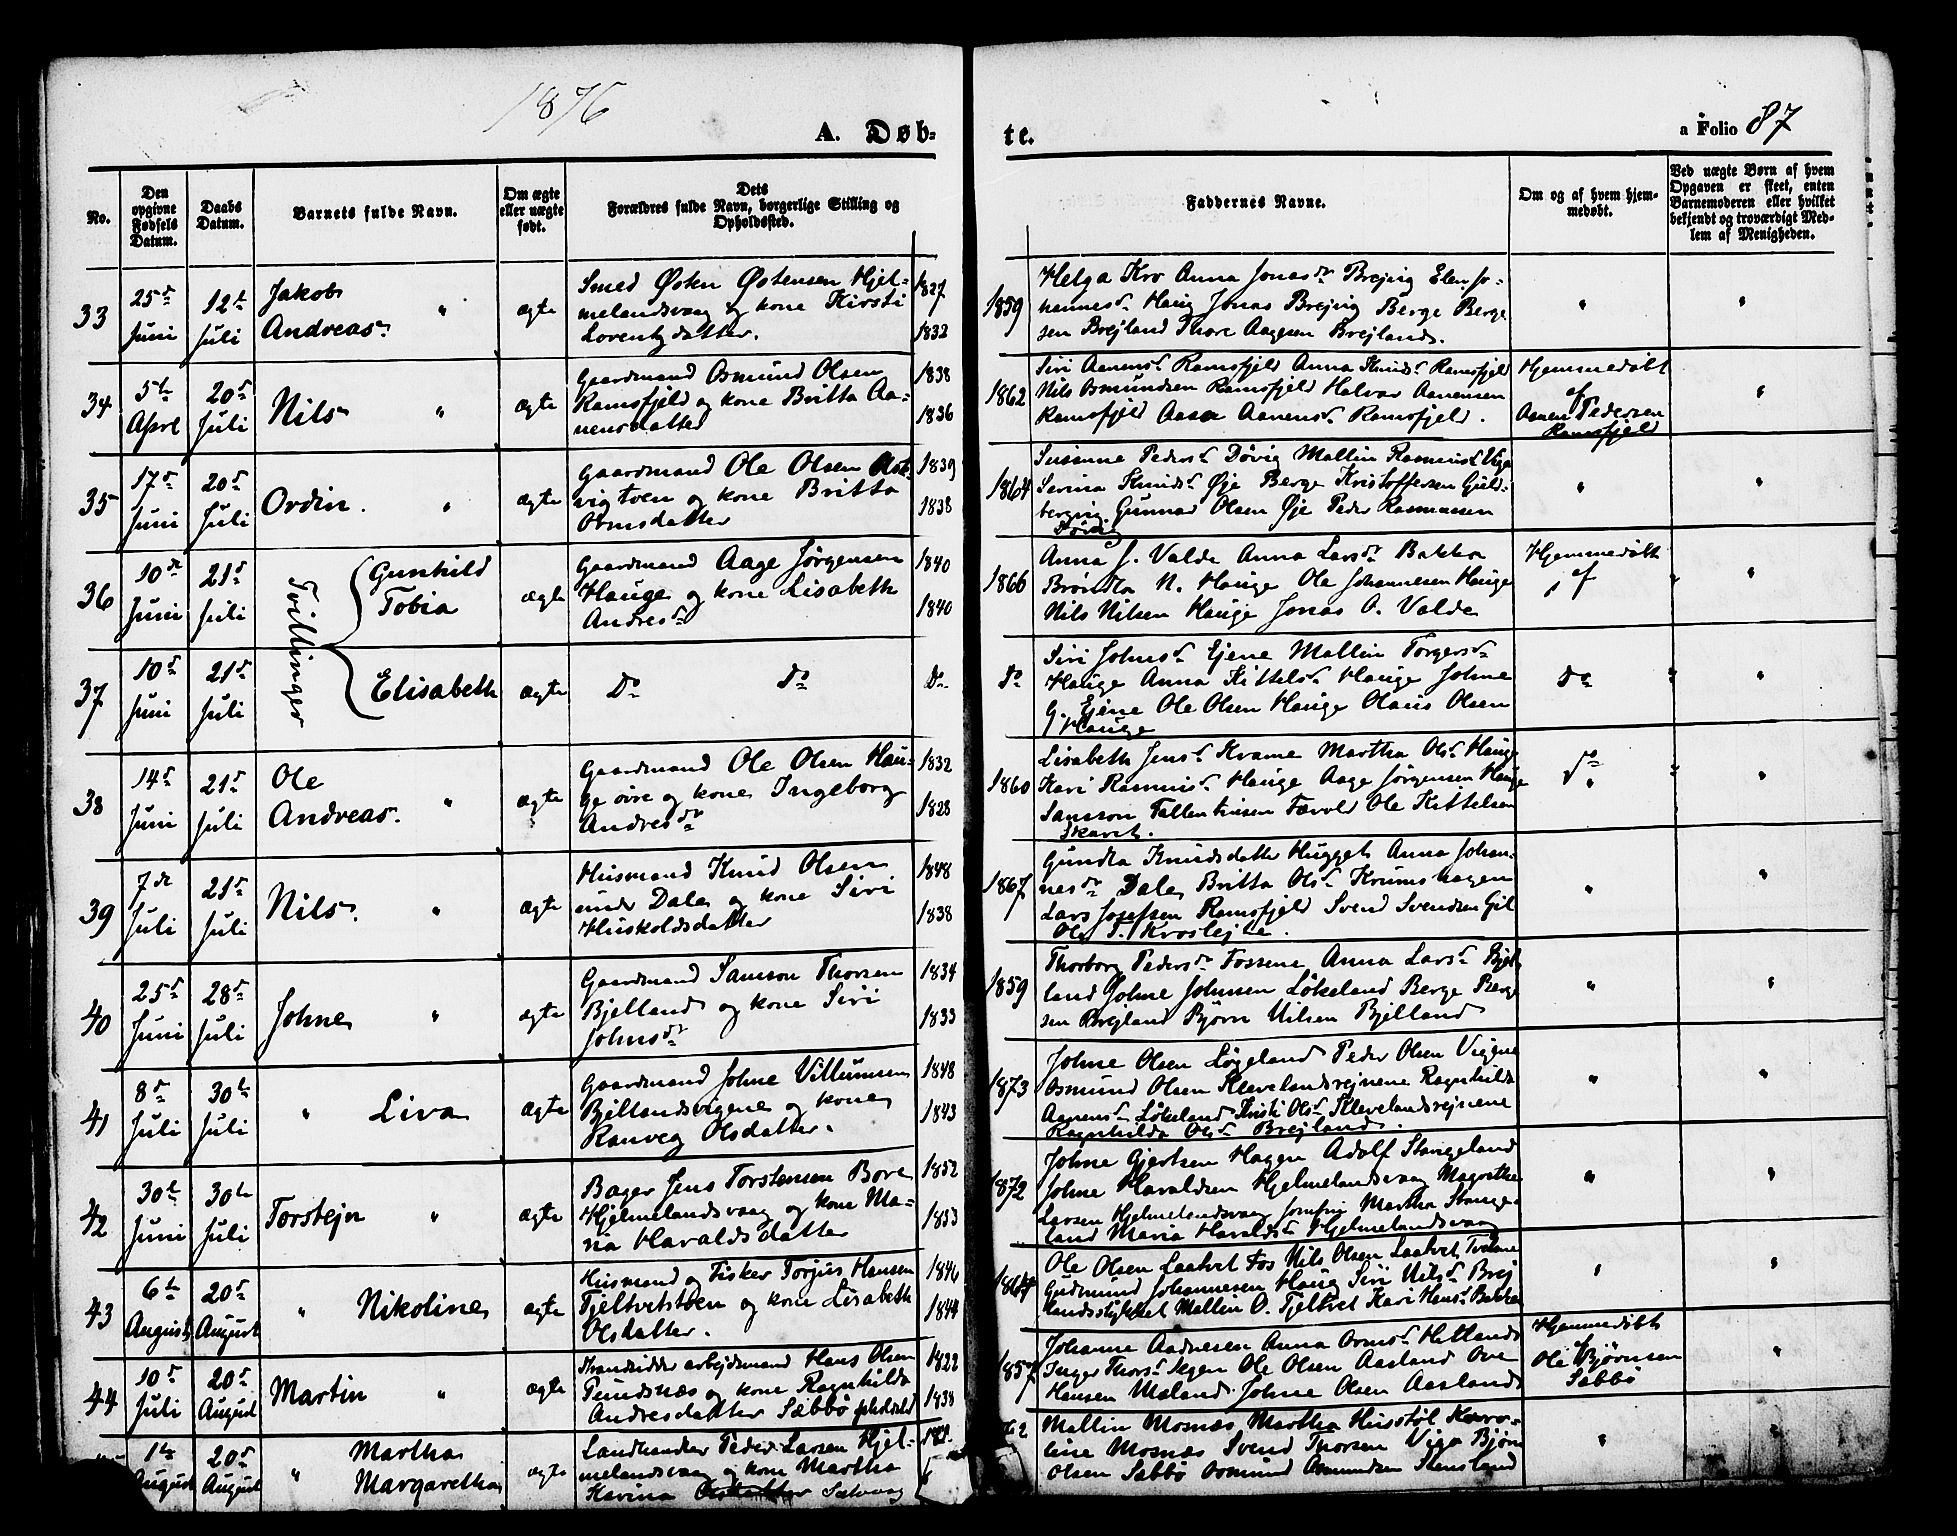 1876
A. Døb-
te.
a Folio 87
No.
Den opgivne Fødsels Datum.
Daabs Datum.
Barnets fulde Navn.
Om ægte eller uægte født.
Dets Forældres fulde Navn, borgerlige Stilling og Opholdssted.
Faddernes Navne.
Om og af hvem hjemmedøbt.
Ved uægte Børn af hvem Opgaven er skeet, enten Barnemoderen eller hvilket bekjendt og troværdigt Medlem af Menigheden.
33 25d Juni 12t Juli Jakob Andreas " ægte
Smed Østen Østensen Hjel-
melandsvaag og kone Kirsti
Lorentzdatter.
1827 1832 1859
Helga Kro Anna Jonasdr Brejvig Elen Jo-
hannesd. Haug Jonas Brejvig Berge Berge
sen Brejland Thore Aagesen Brejland.
34 5te April 20d Juli Nils " ægte
Gaardmand Osmund Olsen
Ramsfjeld og kone Britta Aa-
nensdatter
1838 1836 1862
Siri Aanensd. Ramsfjeld Anna Knudsd. Ramsfjeld
Nils Osmundsen Ramsfjeld Halvar Aanensen
Ramsfjeld Aasa Aanensd. Ramsfjeld.
Hjemmedøbt af Aanen Pedersen Ramsfjeld
35 17d Juni 20d Juli Ordin. " ægte
Gaardmand Ole Olsen
og kone Britta
Ormsdatter
1839 1838 1864
Susanne Pedersd. Døvig Mallin Rasmusd.
Serina Knudsd. Øje Berge Kristoffersen Guld-
berging Gunnar Olsen Øje Peder Rasmussen
Døvig
36 10de Juni 21d Juli Tvillinger Gunhild Tobia ægte
Gaardmand Aage Jørgensen
Hauge og kone Lisabeth
Andresdr
1840 1840 1866
Anna J. Valde Anna Larsdr Bakka
Brøndla N. Hauge Ole Johannesen Hauge
Nils Nilsen Hauge Jonas O. Valde
Hjemmedøbt af
37 10d Juni 21d Juli Elisabeth ægte
Do Do Do Do
Siri Johnsd. Ejene Mallin Torgersd.
Hauge Anna Kittelsd. Hauge Johne
G. Ejene Ole Olsen Hauge Olaus Olsen
Hauge
Do
38 14d Juni 21d Juli Ole Andreas. " ægte
Gaardmand Ole Olsen Hau-
ge øvre og kone Ingeborg
Andresdr
1832 1828 1860
Lisabeth Jensd. Kvame Martha Olsd. Hauge
Kari Rasmusd. Hauge Aage Jørgensen Hauge
Samson Tallentinsen Førvold Ole Kittelsen
Skaret.
Do
39 7de Juli 21d Juli Nils. " ægte
Husmand Knud Olsen
under Dale og kone Siri
Huskoldsdatter
1848 1838 1867
Gundla Knudsdatter Hugget Anna Johan-
nesdr Dale Britta Olsd. Krumshagen
Lars Josefsen Ramsfjeld Svend Svendsen Gil
Ole T. Kroslejte.
40 25d Juni 28d Juli Johne " ægte
Gaardmand Samson Thorsen
Bjelland og kone Siri
Johnsdr
1834 1833 1859
Thorborg Pedersdr Fossene Anna Larsd. Bjel-
land Johne Johnsen Løkeland Berge Berge
sen Brejland Bjørn Nilsen Bjelland
41 8d Juli 30te Juli " Liva ægte
Gaardmand Johne Villumsen
Bjellandsvigene og kone
Ranveg Olsdatter.
1848 1843 1873
Johne Olsen Løgeland Peder Olsen Vigene
Osmund Olsen Klevelandsvejnene Ragnhilda
Aanensd. Løkeland Kristi Olsd. Klevelandsvejnene
Ragnhilda Olsd. Brejland.
42 30te Juni 30te Juli Torstejn " ægte
Bager Jens Torstensen Bore
Hjelmelandsvaag og kone Ma-
ria Haraldsdatter
1852 1853 1872
Johne Gjertsen Hagen Adolf Stangeland
Johne Haraldsen Hjelmelandsvaag Magrethe
Larsen Hjelmelandsvaag Jomfru Martha Stange-
land Maria Haraldsd. Hjelmelandsvaag
43 6te August 20d August " Nikoline ægte
Husmand og Fisker Torjus Hansen
Tjeltvetstøen og kone Lisabeth
Olsdatter.
1846 1844
Ole Olsen Laatvet Fos Nils Olsen Laatvet
Gudmund Johannesen Haug Siri Nilsd. Brej
landsstykket Mallen O. Tjeltvet Kari Hansd. Bakken
44 10d Juli 20d August Martin " ægte
Strandsidder arbejdsmand Hans Olsen
Pundsnæs og kone Ragnhilda
Andresdatter Sæbbø
1822 1838 1857
Johanne Aadnesen Anna Ormsd. Hetland
Inger Thorsd. Ole Olsen Aasland Ove
Hansen Mæland. Johne Olsen Aasland
Hjemmedøbt af Ole Bjørnsen Sæbbø
1te August 20d August " Martha Margaretha ægte
Landhandler Peder Larsen Hjel-
melandsvaag og kone Martha
Karina Selvaag
Mallin Mosnæs Martha Husstøl Karo-
line Mosnæs Svend Thorsen Viga Bjørn
Olsen Sæbbø Osmund Osmundsen Stensland